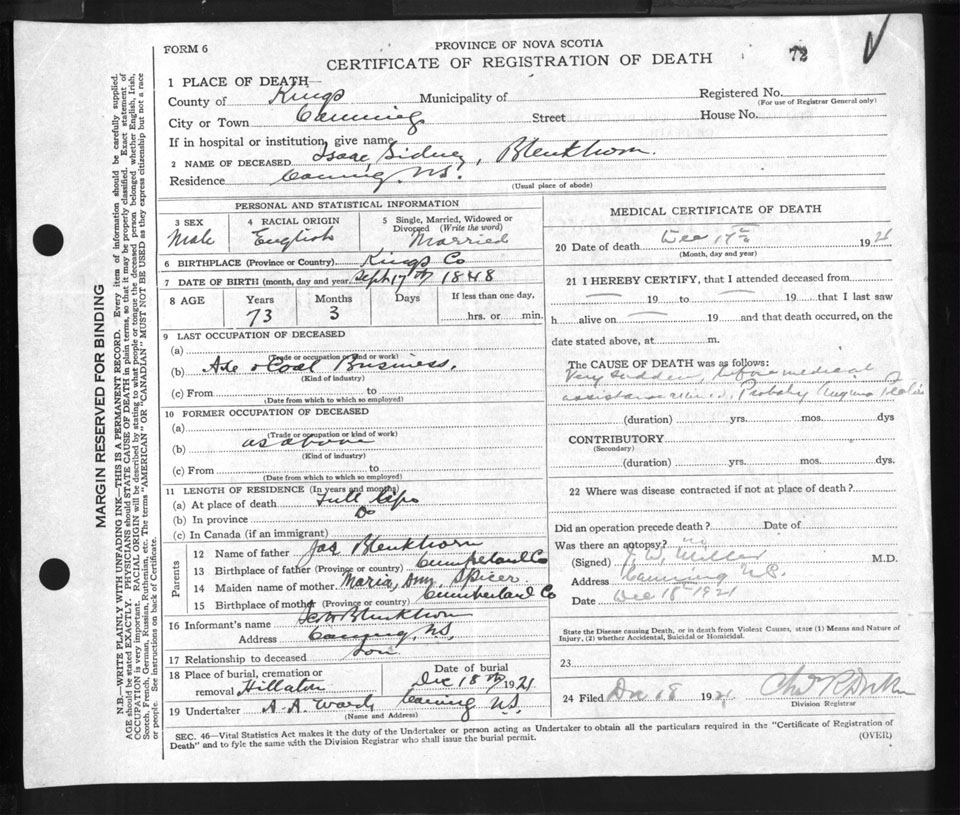 FORM 6
PROVINCE OF NOVA SCOTIA
CERTIFICATE OF REGISTRATION OF DEATH
72
1 PLACE OF DEATH—
County of Kings Municipality of
Registered No.
(For use of Registrar General only)
City or Town Canning Street House No.
If in hospital or institution, give name
2 NAME OF DECEASED Isaac Sidney, Blenkhorn.
Residence Canning, N.S.
(Usual place of abode)
PERSONAL AND STATISTICAL INFORMATION
3 SEX 4 RACIAL ORIGIN 5 Single, Married, Widowed or
Divorced (Write the word)
Male English Married
6 BIRTHPLACE (Province or Country) Kings Co
7 DATE OF BIRTH (month, day and year) Sept 17th 1848
8 AGE Years Months Days If less than one day,
73 3 hrs. or min.
9 LAST OCCUPATION OF DECEASED
(a)
(Trade or occupation and kind or work)
(b) Coal Business,
(Kind of industry)
(c) From to
(Date from which to which so employed)
10 FORMER OCCUPATION OF DECEASED
(a)
(Trade or occupation or kind of work)
(b) as above
(Kind of industry)
(c) From to
(Date from which to which so employed)
11 LENGTH OF RESIDENCE (In years and months)
(a) At place of death Full life
(b) In province Do
(c) In Canada (if an immigrant)
Parents
12 Name of father Jas Blenkhorn
13 Birthplace of father (Province or country) Cumberland Co
14 Maiden name of mother Maria, Spicer
15 Birthplace of mother (Province or country) Cumberland Co
16 Informant's name Blenkhorn
Address Canning, N.S.
17 Relationship to deceased Son
18 Place of burial, cremation or Date of burial
removal Hillaton Dec 18th 1921
19 Undertaker A. A. Ward, Canning N.S.
(Name and Address)
MEDICAL CERTIFICATE OF DEATH
20 Date of death Dec 17th 1921
(Month, day and year)
21 I HEREBY CERTIFY, that I attended deceased from
19 to 19 that I last saw
h alive on 19 and that death occurred, on the
date stated above, at m.
The CAUSE OF DEATH was as follows:
Very sudden, before medical
assistance Probably Angina Pectoris
(duration) yrs. mos. dys
CONTRIBUTORY
(Secondary)
(duration) yrs. mos. dys.
22 Where was disease contracted if not at place of death?
Did an operation precede death? Date of
Was there an autopsy?
(Signed) Miller M.D.
Address Canning N.S.
Date Dec 18th 1921
State the Disease causing Death, or in death from Violent Causes, state (1) Means and Nature of
Injury, (2) whether Accidental, Suicidal or Homicidal.
23
24 Filed Dec 18 1921
Division Registrar
SEC. 46—Vital Statistics Act makes it the duty of the Undertaker or person acting as Undertaker to obtain all the particulars required in the "Certificate of Registration of
Death" and to fyle the same with the Division Registrar who shall issue the burial permit.
(OVER)
MARGIN RESERVED FOR BINDING
N.B.—WRITE PLAINLY WITH UNFADING INK—THIS IS A PERMANENT RECORD. Every item of information should be carefully supplied.
AGE should be stated EXACTLY. PHYSICIANS should STATE CAUSE OF DEATH in plain terms, so that it may be properly classified. Exact statement of
OCCUPATION is very important. RACIAL ORIGIN will be described by stating to what people or tongue the deceased person belonged whether English, Irish,
Scotch, French, German, Russian, Ruthenian, etc. The terms "AMERICAN" OR "CANADIAN" MUST NOT BE USED as they express citizenship but not a race
or people. See instructions on back of Certificate.